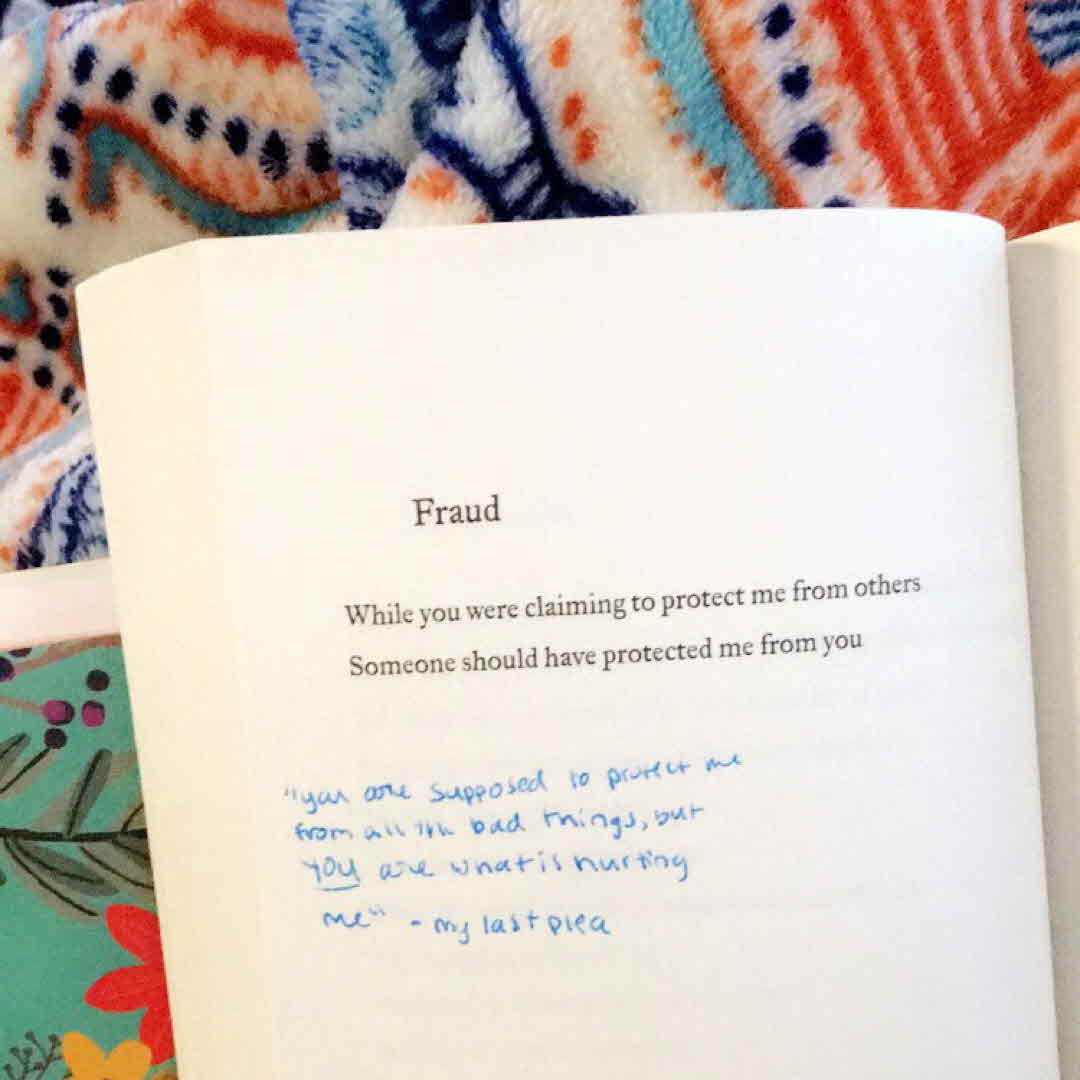 Fraud
While you were claiming to protect me from others
Someone should have protected me from you
"you are supposed to protect me
from all the bad things, but
YOU are what is hurting
me" - my last plea